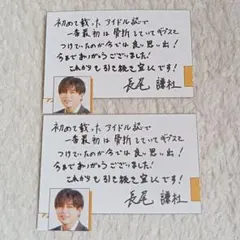 初めて載ったアイドル誌で
一番最初は骨折していてギプスを
つけていたのが今では良い思い出!
今までありがとうございました!
これからも引き続き宜しくです!
長尾 謙杜
初めて載ったアイドル誌で
一番最初は骨折していてギプスを
つけていたのが今では良い思い出!
今までありがとうございました!
これからも引き続き宜しくです!
長尾 謙杜